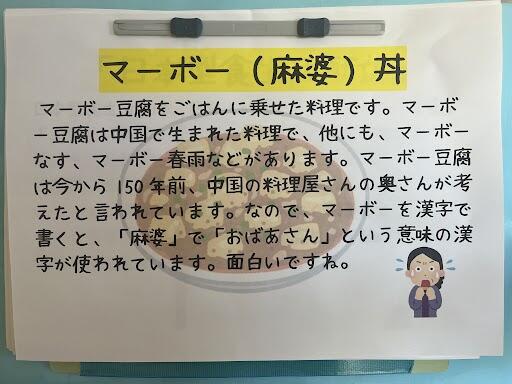 マーボー（麻婆）丼
マーボー豆腐をごはんに乗せた料理です。マーボ
ー豆腐は中国で生まれた料理で、他にも、マーボー
なす、マーボー春雨などがあります。マーボー豆腐
は今から150年前、中国の料理屋さんの奥さんが考
えたと言われています。なので、マーボーを漢字で
書くと、「麻婆」で「おばあさん」という意味の漢
字が使われています。面白いですね。